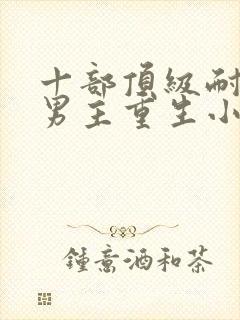 十部頂級耐
男主重生小
鍾意酒和茶